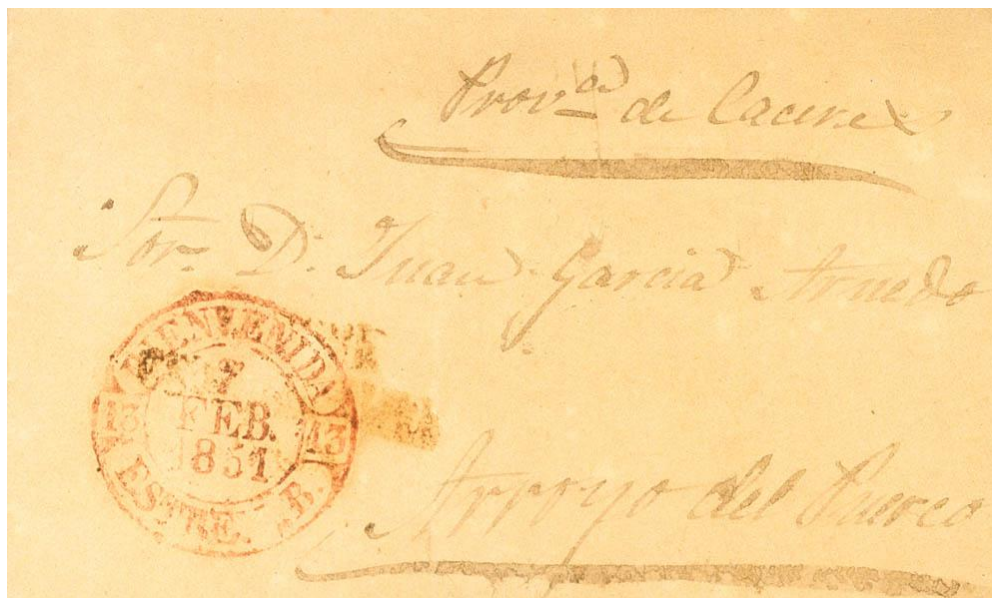 Provᵃ de Caceres
Sor. D. Juan Garcia Arnedo
BIENVENIDA
7
FEB.
1851
13 13
ESTRE. B.
Arroyo del Puerco